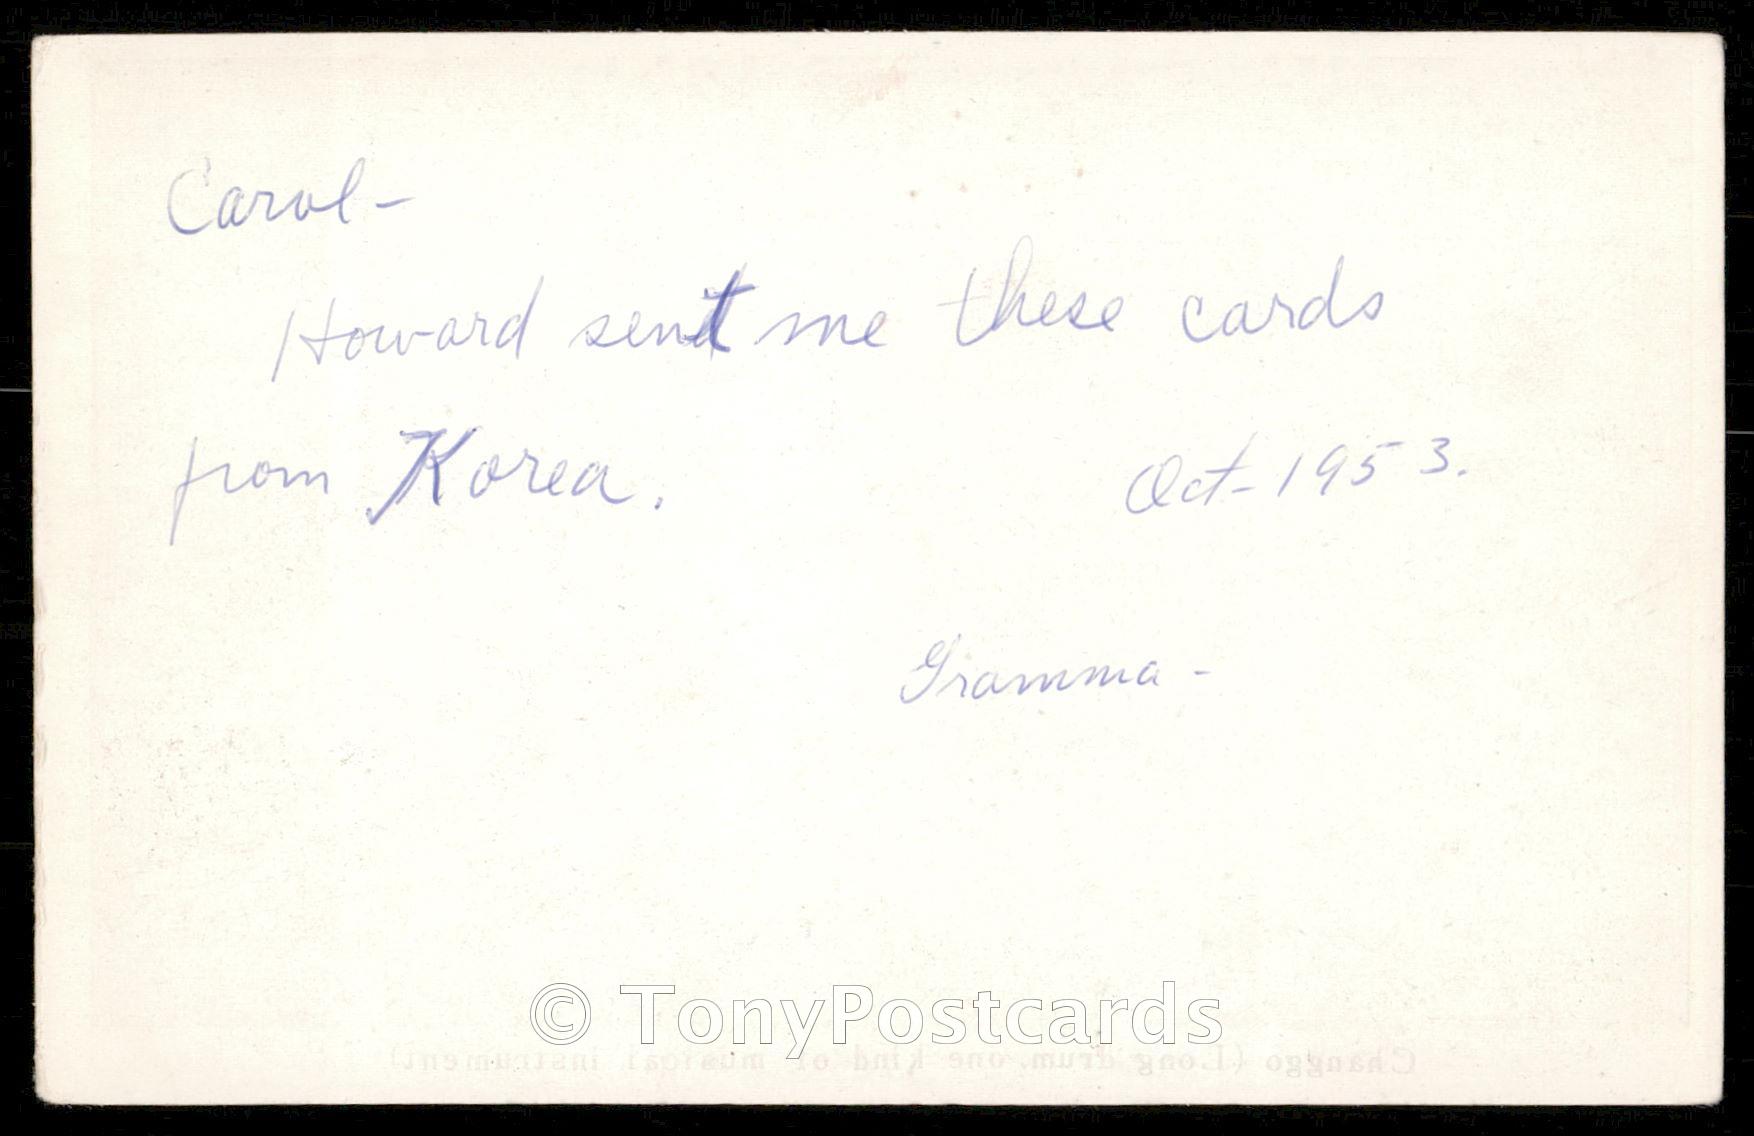 Carol-
Howard sent me these cards
from Korea. Oct-1953.
Gramma-
© TonyPostcards
Changgo (Long drum, one kind of musical instrument)